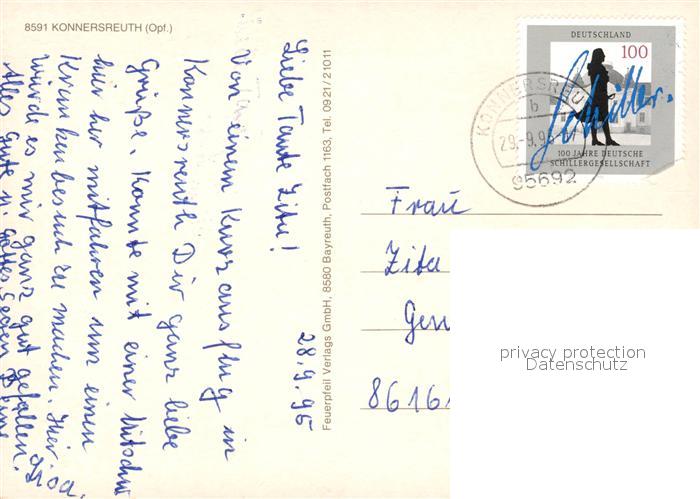 8591 KONNERSREUTH (Opf.)
28.9.95
Liebe Tante Zita!
Von einem Kurzausflug in
Konnersreuth Dir ganz liebe
Grüße. Konnte mit einer Mitschw
hier her mitfahren um einen
Krankenbesuch zu machen. Hier
würde es mir ganz gut gefallen.
Alles Gute u. Gottes Segen
Feuerpfeil Verlags GmbH, 8580 Bayreuth, Postfach 1163, Tel. 0921/21011
DEUTSCHLAND
100
Schiller.
100 JAHRE DEUTSCHE
SCHILLERGESELLSCHAFT
KONNERSREU
b
29.-9.95
95692
Frau
Zita
Gen
8616
privacy protection
Datenschutz